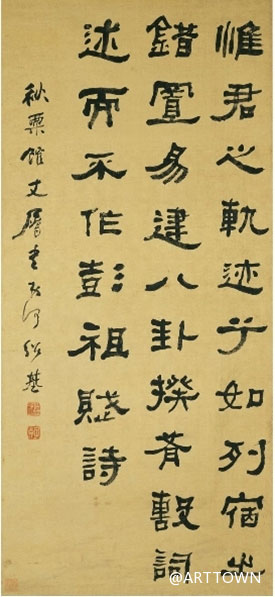 惟君之軌迹兮如列宿之
錯置易建八卦揆肴毄詞
述而不作彭祖賦詩
秋粟館丈屬書何紹基
@ARTTOWN